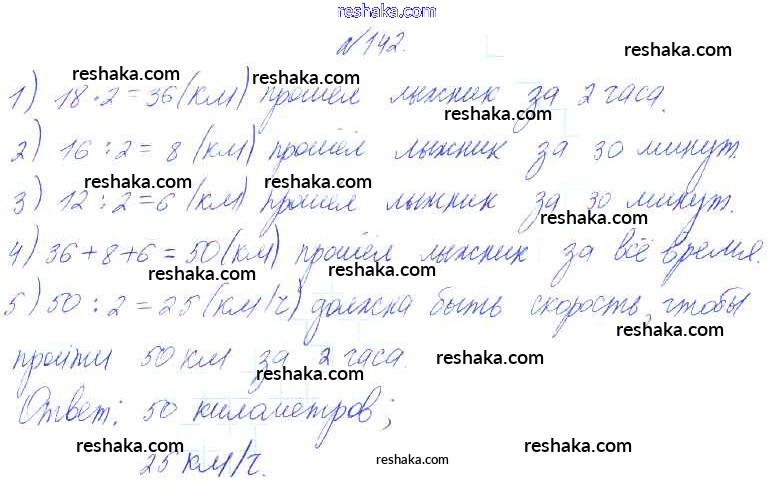 reshaka.com
№142.
reshaka.com reshaka.com reshaka.com
1) 18·2=36(км) прошёл лыжник за 2 часа.
reshaka.com
2) 16:2=8 (км) прошёл лыжник за 30 минут.
reshaka.com reshaka.com
3) 12:2=6 (км) прошёл лыжник за 30 минут.
reshaka.com
4) 36+8+6=50(км) прошёл лыжник за всё время.
reshaka.com
5) 50:2=25(км/ч) должна быть скорость, чтобы
reshaka.com
пройти 50 км за 2 часа.
reshaka.com
reshaka.com
Ответ: 50 километров;
reshaka.com reshaka.com
25 км/ч.
reshaka.com